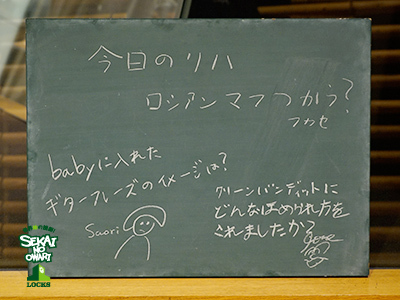 今日のリハ
ロシアンマフつかう?
フカセ
babyに入れた
ギターフレーズのイメージは?
Saori
グリーンバンディットに
どんなほめられ方を
されましたか?
SEKAI
NO
OWARI
LOCKS